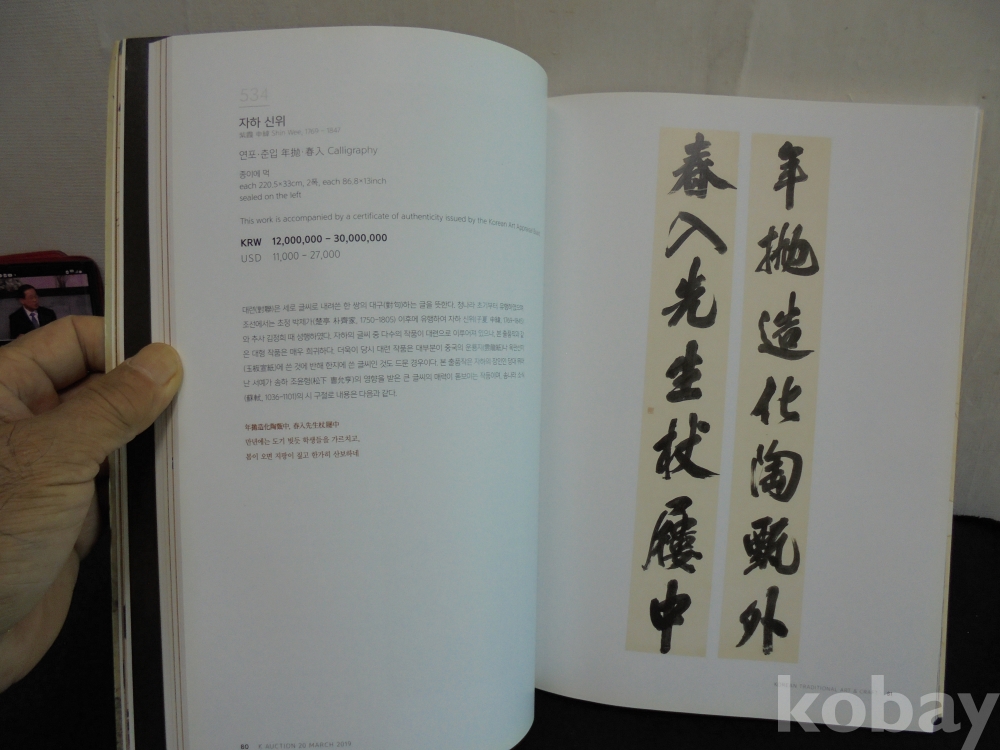 534
자하 신위
紫霞 申緯 Shin Wee, 1769 ~ 1847
연포·춘입 年抛·春入 Calligraphy
종이에 먹
each 220.5×33cm, 2폭, each 86.8×13inch
sealed on the left
This work is accompanied by a certificate of authenticity issued by the Korean Art
KRW 12,000,000 ~ 30,000,000
USD 11,000 ~ 27,000
대련(對聯)은 세로 글씨로 내려쓴 한 쌍의 대구(對句)하는 글을 뜻한다. 청나라 초기부터 유행하였으며
조선에서는 초정 박제가(楚亭 朴齊家, 1750~1805) 이후에 유행하여 자하 신위(
와 추사 김정희 때 성행하였다. 자하의 글씨 중 다수의 작품이 대련으로 이루어져 있으나, 본 출품작과 같
은 대형 작품은 매우 희귀하다. 더욱이 당시 대련 작품은 대부분이 중국의 운룡지
에 쓴 것에 반해 한지에 쓴 글씨인 것도 드문 경우이다. 본 출품작은 자하의 장인인 당대
난 서예가 송하 조윤형(松下 曺允亨)의 영향을 받은 큰 글씨의 매력이 돋보이는 작품이며, 송나라 소식
(蘇軾, 1036~1101)의 시 구절로 내용은 다음과 같다.
年抛造化陶甄中, 春入先生杖屨中
만년에는 도기 빚듯 학생들을 가르치고,
봄이 오면 지팡이 짚고 한가히 산보하네
80 K AUCTION 20 MARCH 2019
年抛造化陶甄外
春入先生杖屨中
KOREAN TRADITIONAL ART & CRAFT 81
kobay